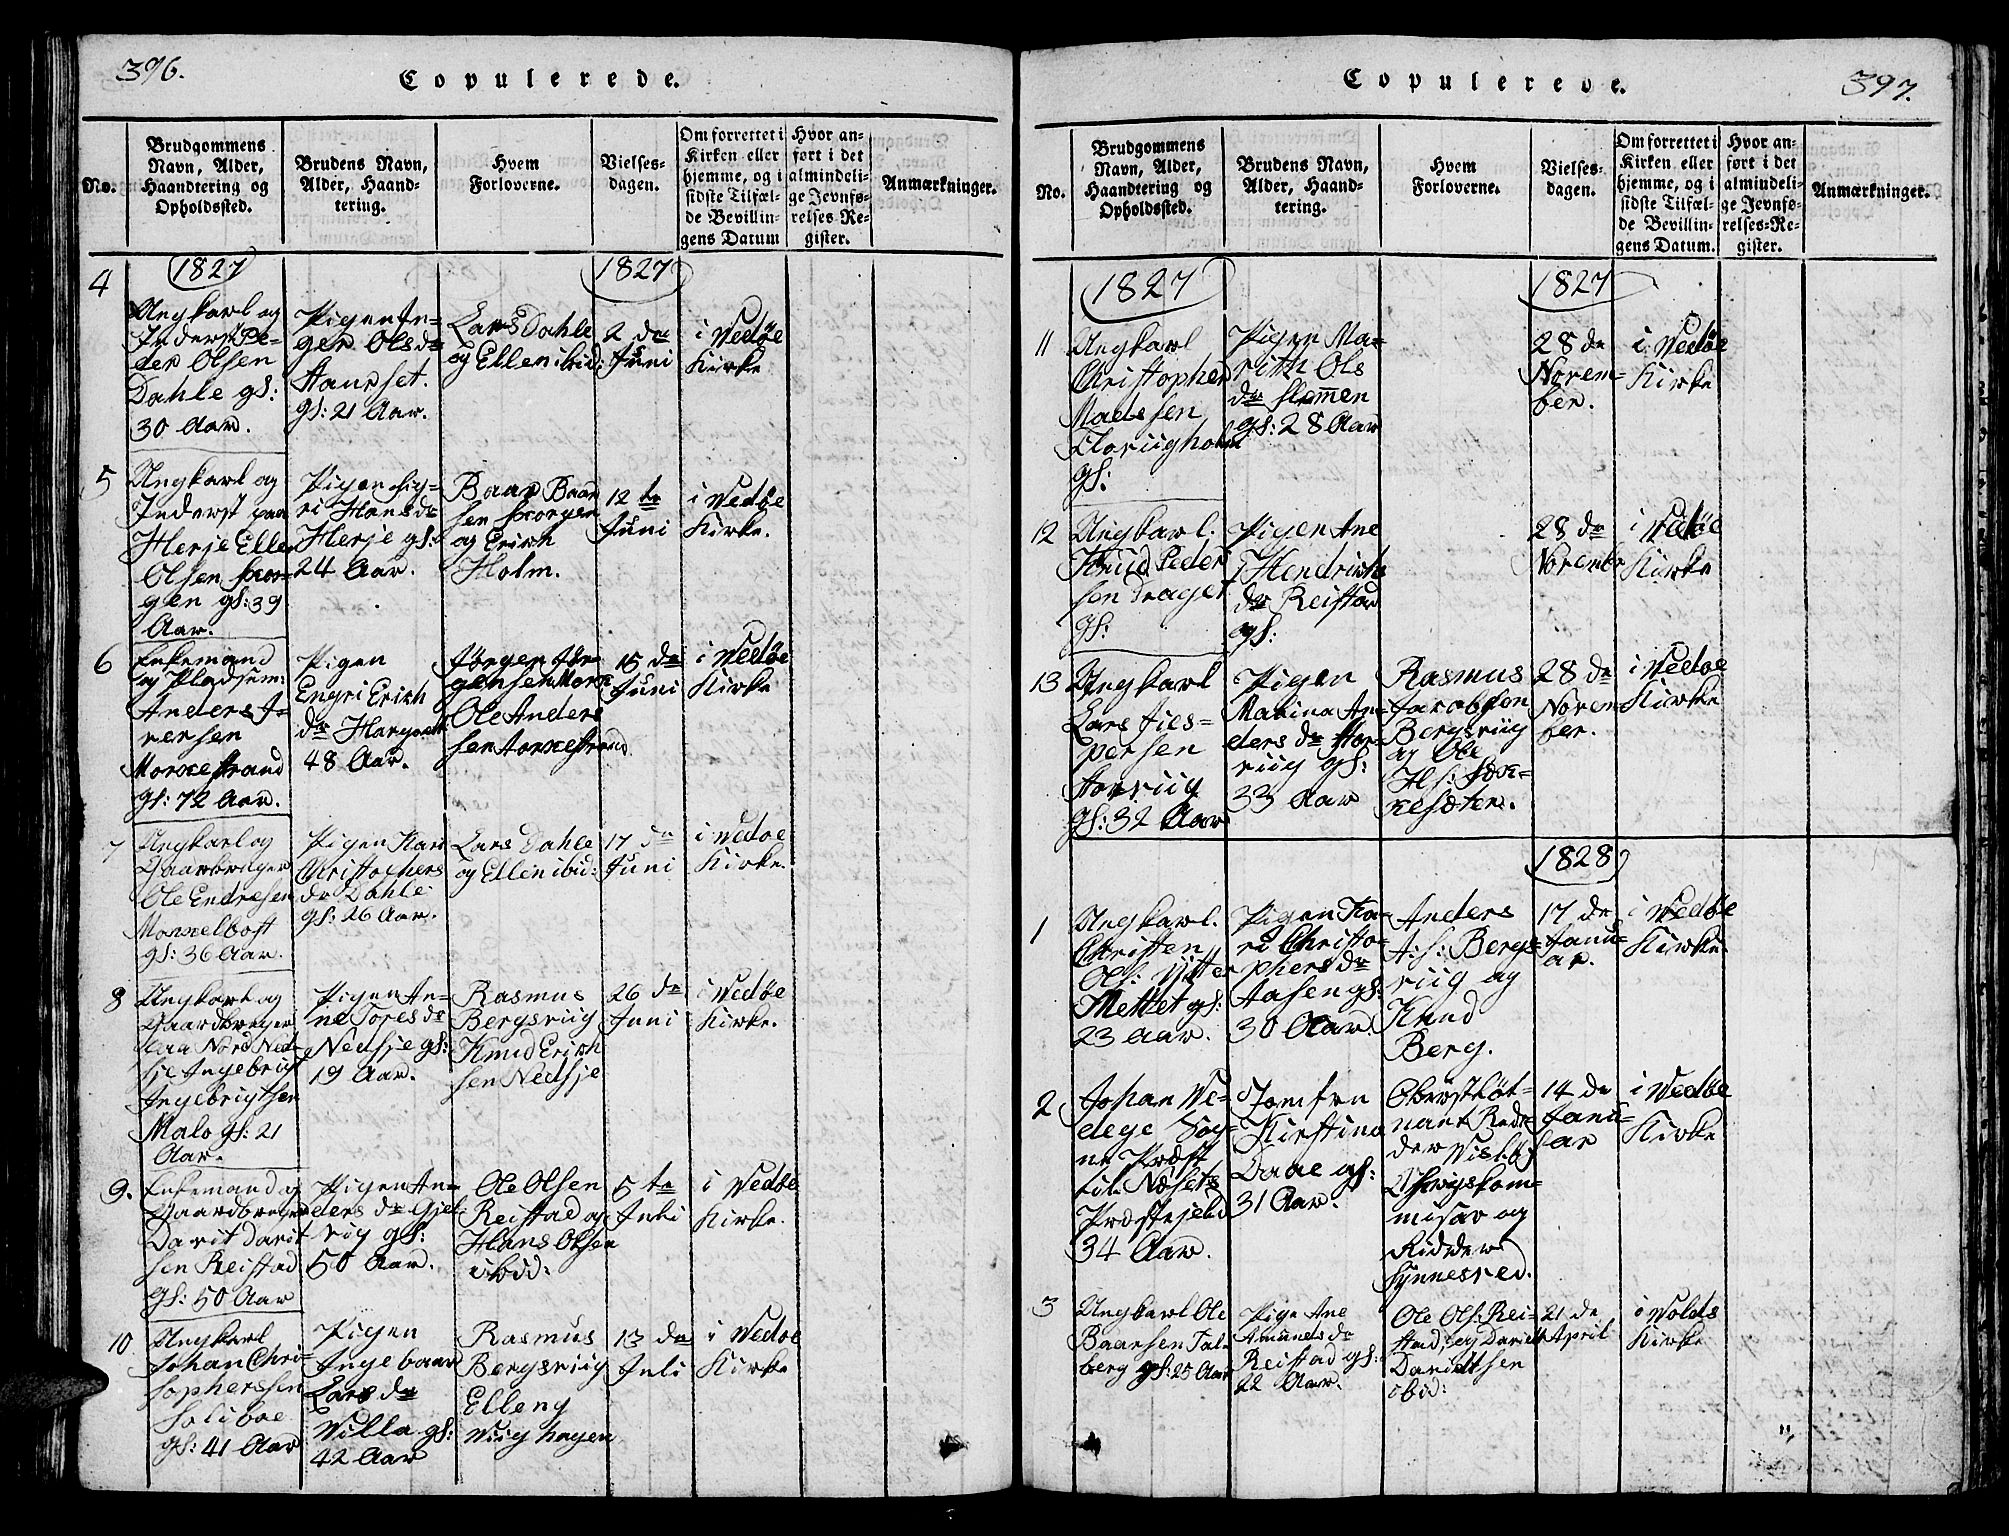 396.
Copulerede.
No.
Brudgommens
Navn, Alder,
Haandtering og
Opholdssted.
Brudens Navn,
Alder, Haand-
tering.
Hvem
Forloverne.
Vielses-
dagen.
Om forrettet i
Kirken eller
hjemme, og i
sidste Tilfæl-
de Bevillin-
gens Datum
Hvor an-
ført i det
almindeli-
ge Jevnfø-
relses-Re-
gister.
Anmærkninger.
1827
1827
4
Ungkarl og
Inderst Pe-
der Olsen
Dahle gl:
30 Aar.
Pigen In-
ger Olsdr
gl: 21 Aar.
Lars Dahle
og Ellen ibid:
2 den
Juni
i Wedøe
Kirke
5
Ungkarl og
Inderst paa
Herje Ellen
Olsen
gen gl: 39
Aar.
Pigen Sig-
ri Hansdr
Herje gl:
24 Aar.
Baar Baar
sen
og Erich
Holm.
12 te
Juni
i Wedøe
Kirke.
6
Enkemand
og Pladsem:
Anders I-
versen
gl: 72 Aar.
Pigen
Engri Erich
dr
48 Aar.
Jørgen Jør-
gensen
Ole Anders
sen
15 de
Juni
i Wedøe
Kirke
7
Ungkarl og
Gaardbruger
Ole Endresen
gl: 36 Aar.
Pigen Kari
Christophers
dr Dahle
gl: 26 Aar.
Lars Dahle
og Ellen ibid:
17 de
Juni
i Wedøe
Kirke.
8
Ungkarl og
Gaardbruger
paa Nord Ned-
sje Ingebrigt
Ingebrigtsen
Malo gl: 21
Aar.
Pigen An-
ne Toresdr
Nedsje gl:
19 Aar.
Rasmus
Bergsviig
Knud Erich
sen Nedsje
26 de
Juni
i Wedøe
Kirke.
9.
Enkemand og
Gaardbruger
David David
sen Reistad
gl: 50 Aar
Pigen An-
ders dr
viig gl:
50 Aar.
Ole Olsen
Reistad og
Hans Olsen
ibid:
5 te
Juli
i Wedøe
Kirke.
10
Ungkarl
Johan Chri-
sophersen
Soliboe
gl: 41 Aar
Pigen
Ingebaar
Larsdr
Willa gl:
42 Aar
Rasmus
Bergsviig
Elleng
Wiig hagen
13 de
Juli
i Wedøe
Kirke
397.
Copulerede.
No.
Brudgommens
Navn, Alder,
Haandtering og
Opholdssted.
Brudens Navn,
Alder, Haand-
tering.
Hvem
Forloverne.
Vielses-
dagen.
Om forrettet i
Kirken eller
hjemme, og i
sidste Tilfæl-
de Bevillin-
gens Datum.
Hvor an-
ført i det
almindeli-
ge Jevnfø-
relses-Re-
gister.
Anmærkninger.
1827
1827
11
Ungkarl
Christopher
Madssen
gl:
Pigen Ma-
rith Ols
dr
gl: 28 Aar
28 de
Novem-
ber.
i Wedøe
Kirke
12
Ungkarl.
Knud Peder
sen
gl:
Pigen Ane
Hendrichs
dr Reistad
gl:
28 de
Novembr
i Wedøe
Kirke
13
Ungkarl
Lars Jes-
persen
gl: 32 Aar
Pigen
Marina An-
ders dr
viig gl:
33 Aar
Rasmus
Jacobsen
Bergsviig
og Ole
28 de
Novem
ber.
i Wedøe
Kirke
1828
1
Ungkarl.
Christen
Ols:
Mettet gl:
23 Aar.
Pigen Ka-
ri Christo-
phersdr
Aasen gl:
30 Aar.
Anders
A: s: Bergs-
viig og
Knud
Berg.
17 de
Janu-
ar.
i Wedøe
Kirke.
2
Johan We-
dege Sog-
ne Præst
til Næssets
Præstegjeld
34 Aar.
Jomfru
Kirstina
Daae gl:
31 Aar.
Obristløt-
nant
der Visløf
Krigskom-
misar og
Ridder
Synnesved.
14 de
Janu-
ar
i Wedøe
Kirke
3
Ungkarl Ole
Baarsen Tal-
berg gl: 25 Aar
Pige Ane
Amunds dr
Reistad gl:
22 Aar.
Ole Ols: Rei-
stad, og David
Davidtsen
ibid:
21 de
April
i Wolds
Kirke